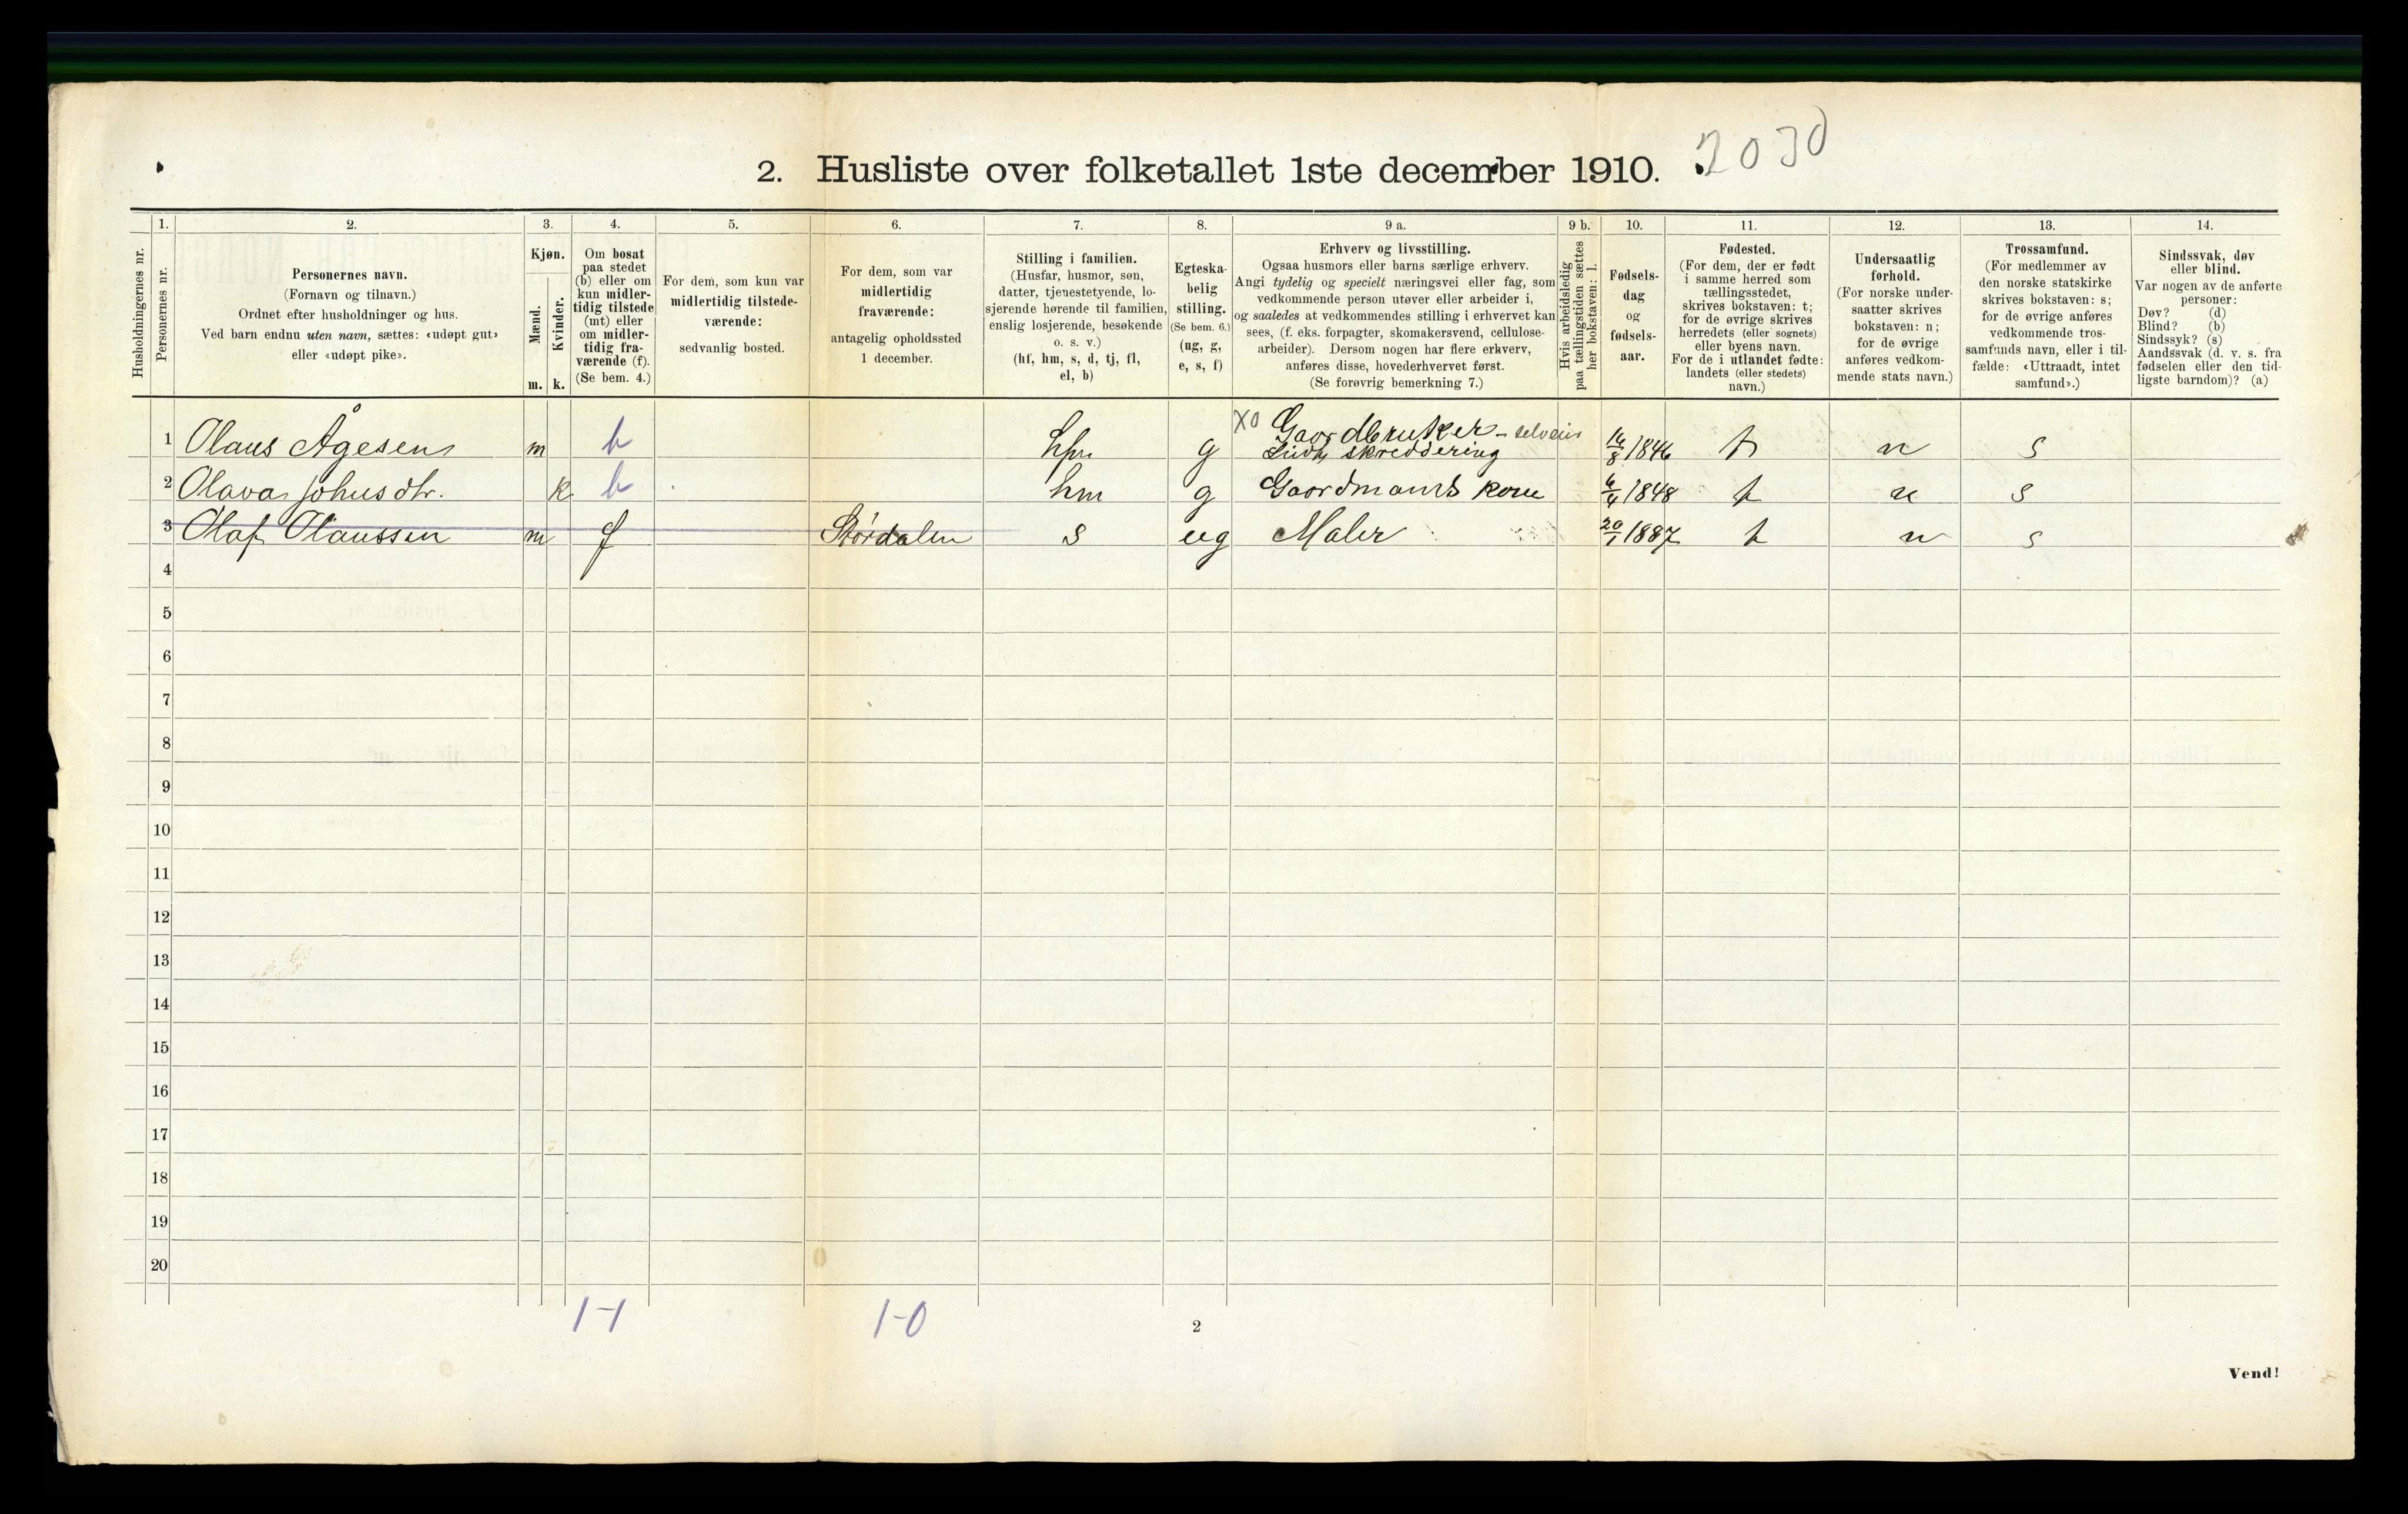 2. Husliste over folketallet 1ste december 1910. 2030
Husholdningernes nr.
1.
Personernes nr.
2.
Personernes navn.
(Fornavn og tilnavn.)
Ordnet efter husholdninger og hus.
Ved barn endnu uten navn, sættes: «udøpt gut»
eller «udøpt pike».
3.
Kjøn.
Mænd.
Kvinder.
m. k.
4.
Om bosat
paa stedet
(b) eller om
kun midler-
tidig tilstede
(mt) eller
om midler-
tidig fra-
værende (f).
(Se bem. 4.)
5.
For dem, som kun var
midlertidig tilstede-
værende:
sedvanlig bosted.
6.
For dem, som var
midlertidig
fraværende:
antagelig opholdssted
1 december.
7.
Stilling i familien.
(Husfar, husmor, søn,
datter, tjenestetyende, lo-
sjerende hørende til familien,
enslig losjerende, besøkende
o. s. v.)
(hf, hm, s, d, tj, fl,
el, b)
8.
Egteska-
belig
stilling.
(Se bem. 6.)
(ug, g,
e, s, f)
9 a.
Erhverv og livsstilling.
Ogsaa husmors eller barns særlige erhverv.
Angi tydelig og specielt næringsvei eller fag, som
vedkommende person utøver eller arbeider i,
og saaledes at vedkommendes stilling i erhvervet kan
sees, (f. eks. forpagter, skomakersvend, cellulose-
arbeider). Dersom nogen har flere erhverv,
anføres disse, hovederhvervet først.
(Se forøvrig bemerkning 7.)
9 b.
Hvis arbeidsledig
paa tællingstiden sættes
her bokstaven: l.
10.
Fødsels-
dag
og
fødsels-
aar.
11.
Fødested.
(For dem, der er født
i samme herred som
tællingsstedet,
skrives bokstaven: t;
for de øvrige skrives
herredets (eller sognets)
eller byens navn.
For de i utlandet fødte:
landets (eller stedets)
navn.)
12.
Undersaatlig
forhold.
(For norske under-
saatter skrives
bokstaven: n;
for de øvrige
anføres vedkom-
mende stats navn.)
13.
Trossamfund.
(For medlemmer av
den norske statskirke
skrives bokstaven: s;
for de øvrige anføres
vedkommende tros-
samfunds navn, eller i til-
fælde: «Uttraadt, intet
samfund».)
14.
Sindssvak, døv
eller blind.
Var nogen av de anførte
personer:
Døv? (d)
Blind? (b)
Sindssyk? (s)
Aandssvak (d. v. s. fra
fødselen eller den tid-
ligste barndom)? (a)
X0 Gaardbruker - selveier
1 Olaus Ågesen m b g skreddering 16/8 1846 t n s
2 Olava Johnsdtr. k b hm g Gaardmands kone 6/4 1848 t n s
3 Olaf Olaussen m f Størdalen s ug Maler 20/1 1887 t n s
4
5
6
7
8
9
10
11
12
13
14
15
16
17
18
19
20
1-1 1-0
2
Vend!